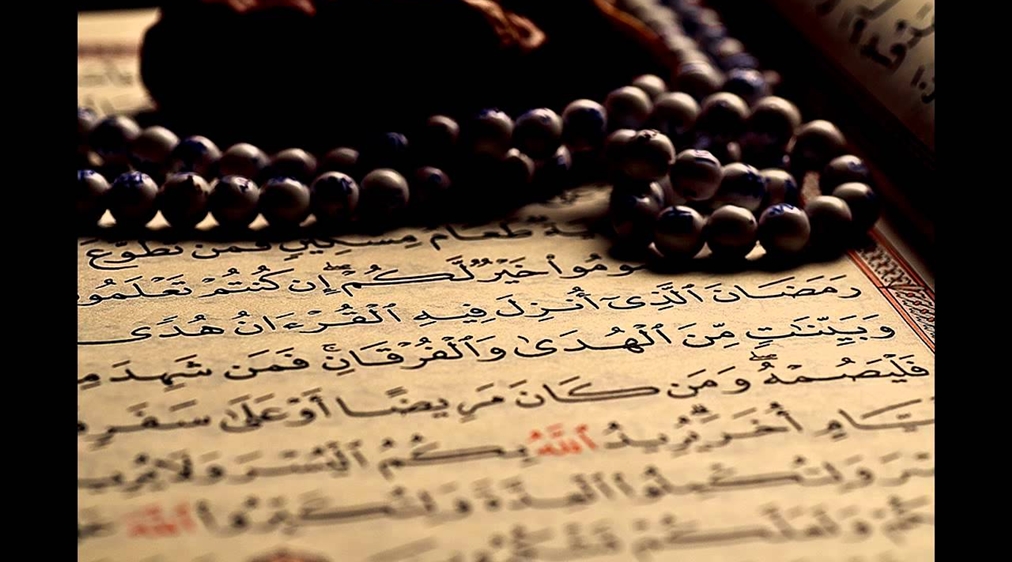 طَعَامُ مِسْكِينٍ فَمَن تَطَوَّعَ
خَيْرٌ لَّكُمْ إِن كُنتُمْ
رَمَضَانَ ٱلَّذِىٓ أُنزِلَ فِيهِ ٱلْقُرْءَانُ هُدًى
وَبَيِّنَٰتٍ مِّنَ ٱلْهُدَىٰ وَٱلْفُرْقَانِ ۚ فَمَن شَهِدَ
فَلْيَصُمْهُ ۖ وَمَن كَانَ مَرِيضًا أَوْ عَلَىٰ سَفَرٍ
أُخَرَ ۗ يُرِيدُ ٱللَّهُ بِكُمُ ٱلْيُسْرَ وَلَا
وَلِتُكْمِلُوا۟ ٱلْعِدَّةَ وَلِتُكَبِّرُوا۟ ٱللَّهَ
وَلَعَلَّكُمْ